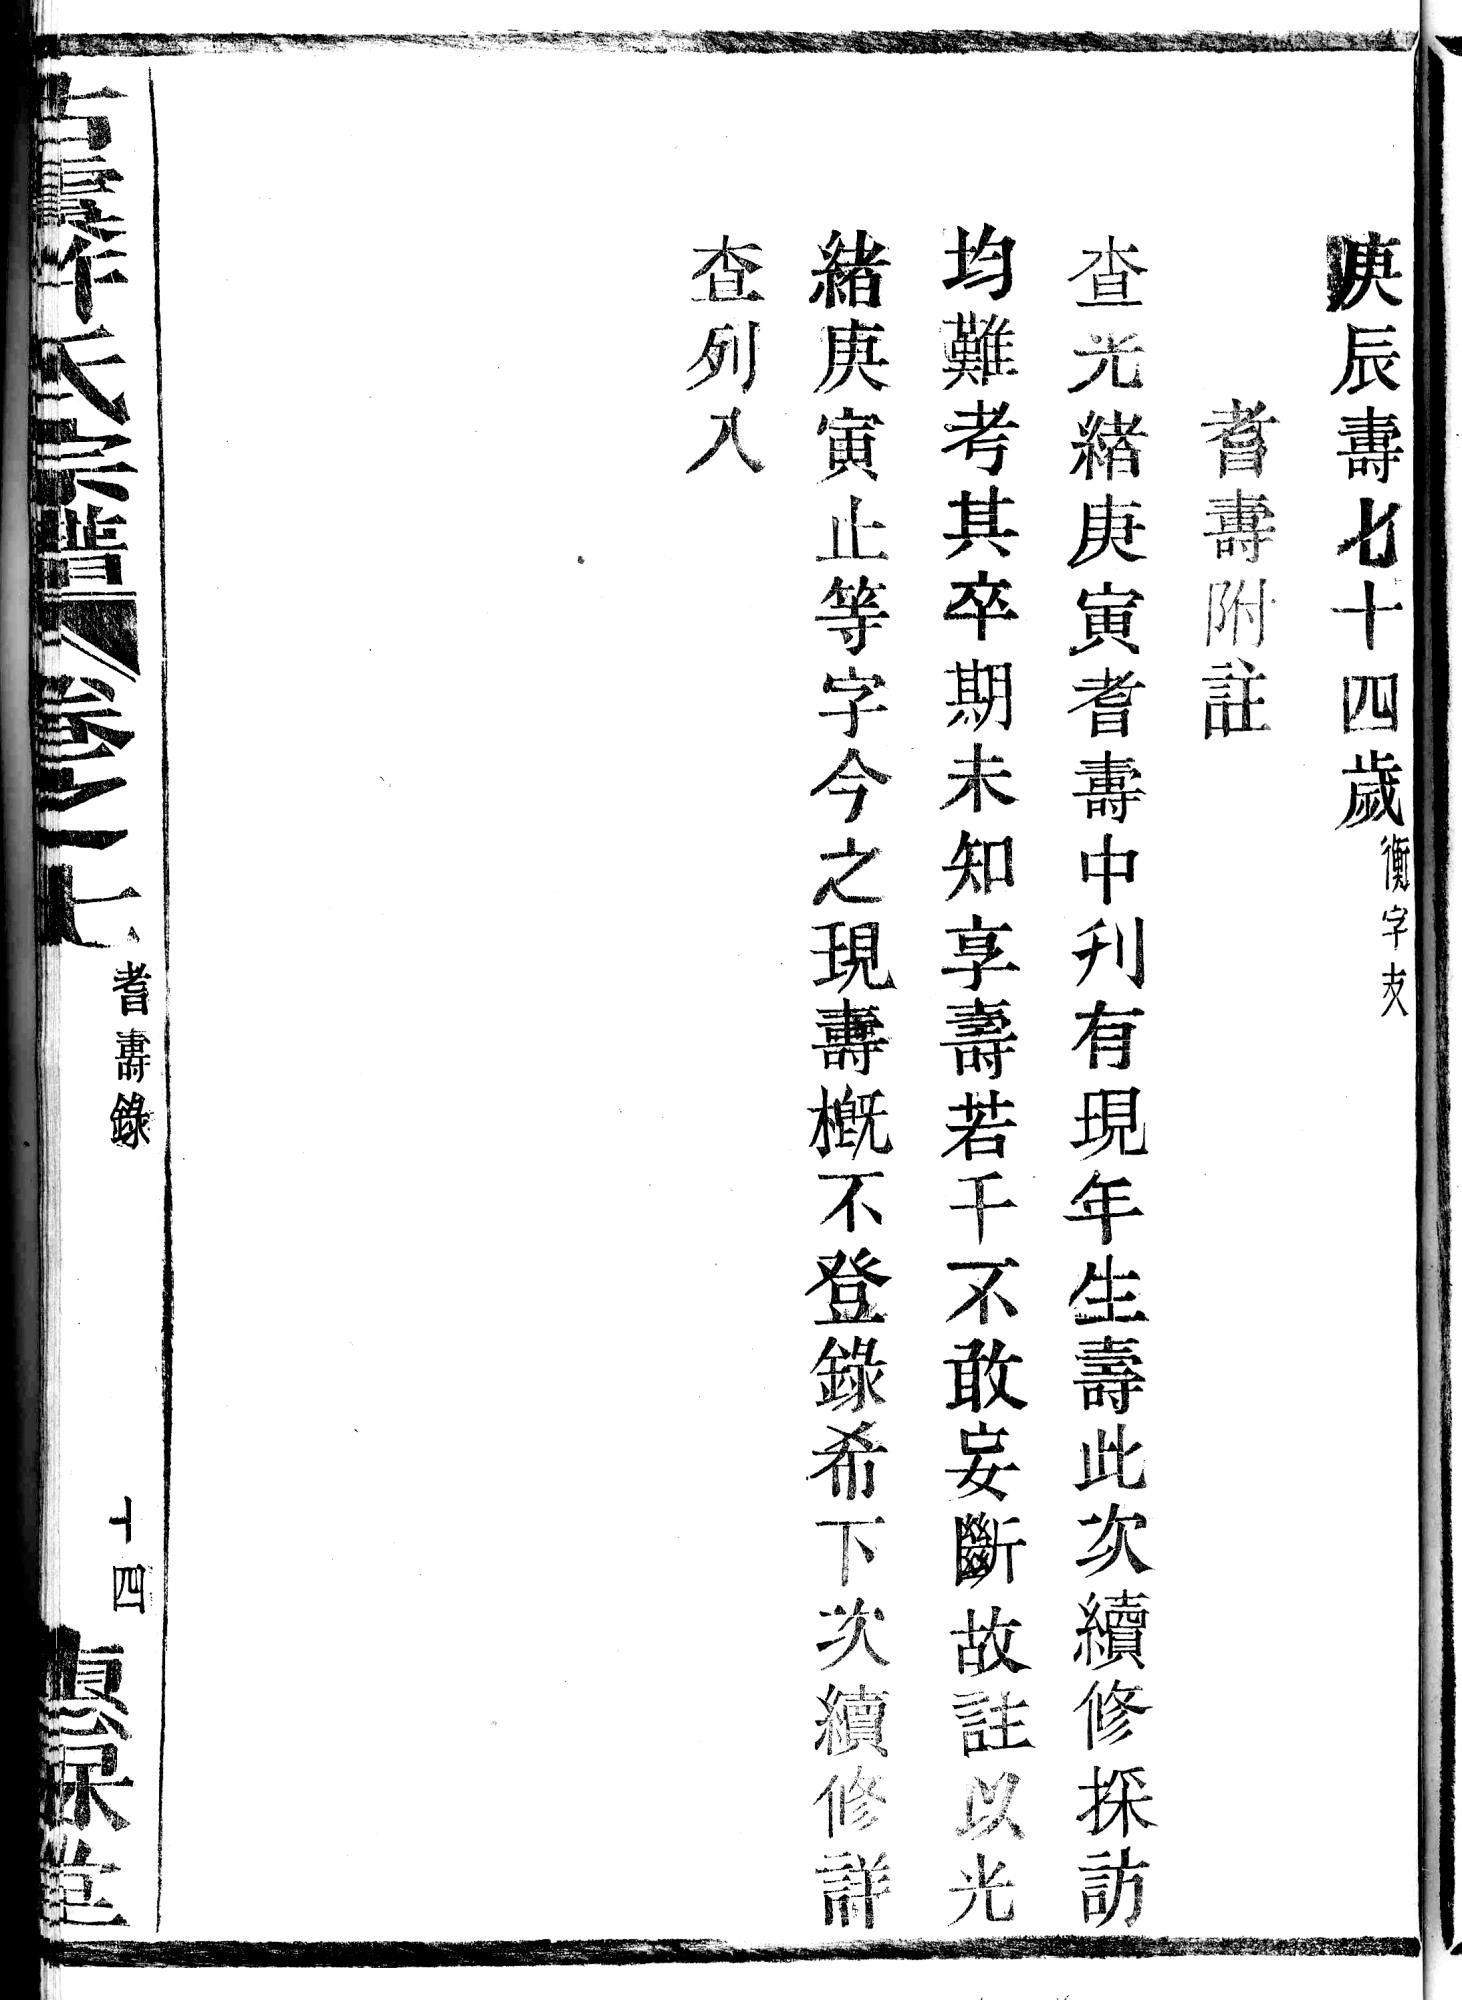 庚辰壽七十四歲衡字支
耆壽附註
查光緒庚寅耆壽中刋有現年生壽此次續修採訪
均難考其卒期未知享壽若千不敢妄斷故註以光
緒庚寅止等字今之現壽概不登錄希下次續修詳
查列入
氏宗譜 卷之七 耆壽錄 十四 惠保堂